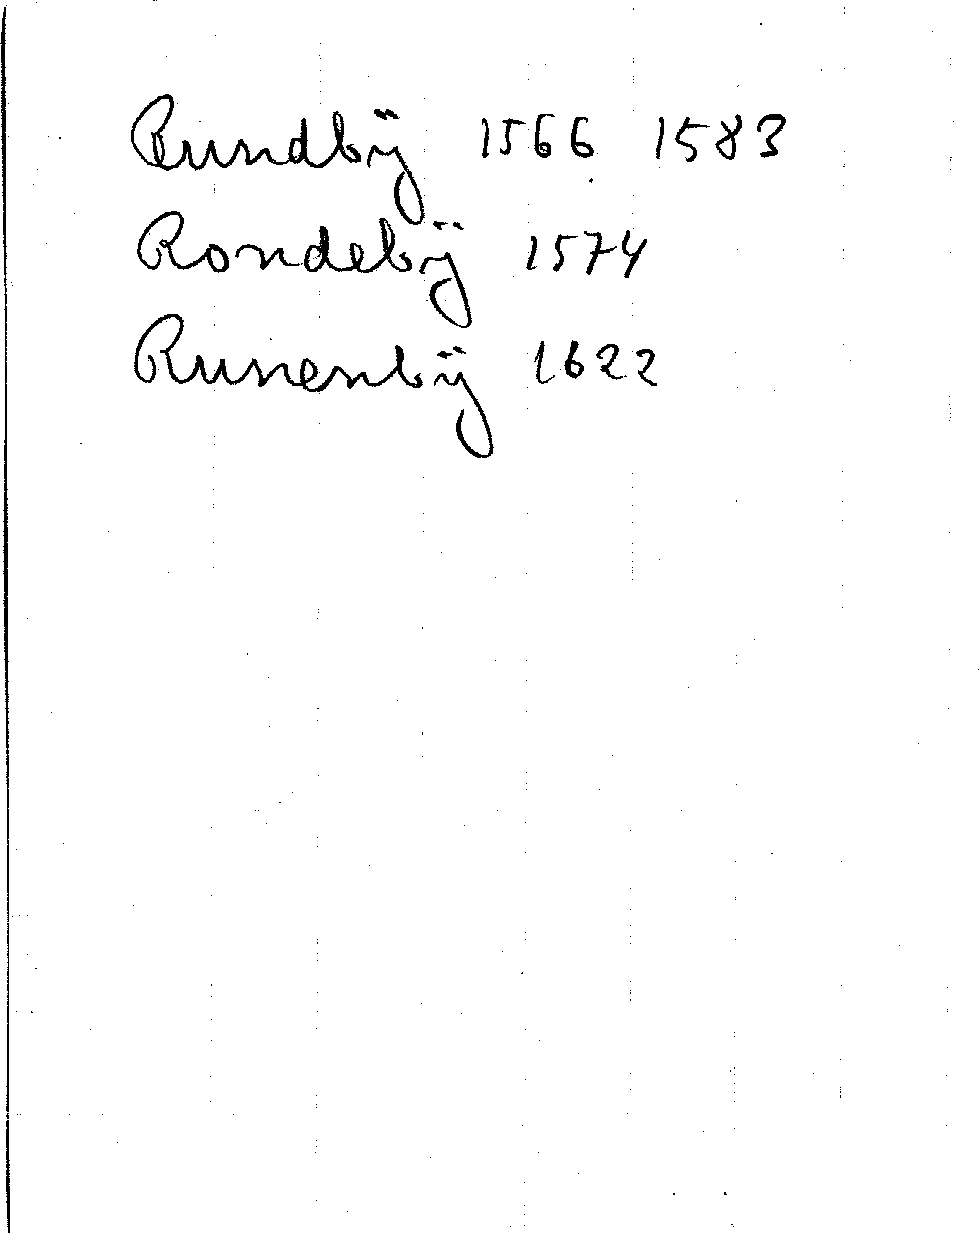 Rundbÿ 1566 1583
Rondebÿ 1574
Runenbÿ 1622